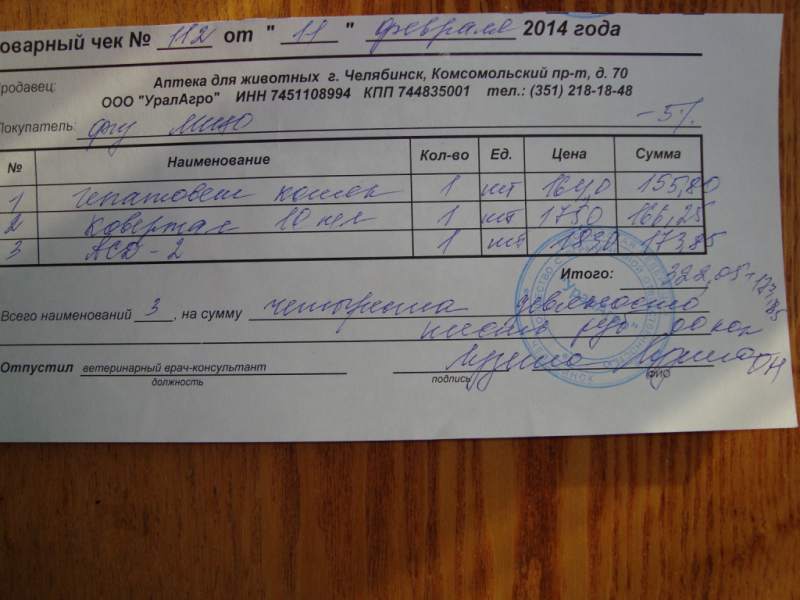 оварный чек № 112 от " 11 " февраля 2014 года
родавец: Аптека для животных г. Челябинск, Комсомольский пр-т, д. 70
ООО "УралАгро" ИНН 7451108994 КПП 744835001 тел.: (351) 218-18-48
Покупатель: -5%
№ Наименование Кол-во Ед. Цена Сумма
1 гепатовет кошек 1 шт 1640 155,80
2 1 шт 1750 166,25
3 АСД-2 1 шт 1830 173,85
Итого: 322,05+173,85
Всего наименований 3, на сумму четыреста девяносто
руб 00 коп
Отпустил ветеринарный врач-консультант
должность подпись ФИО